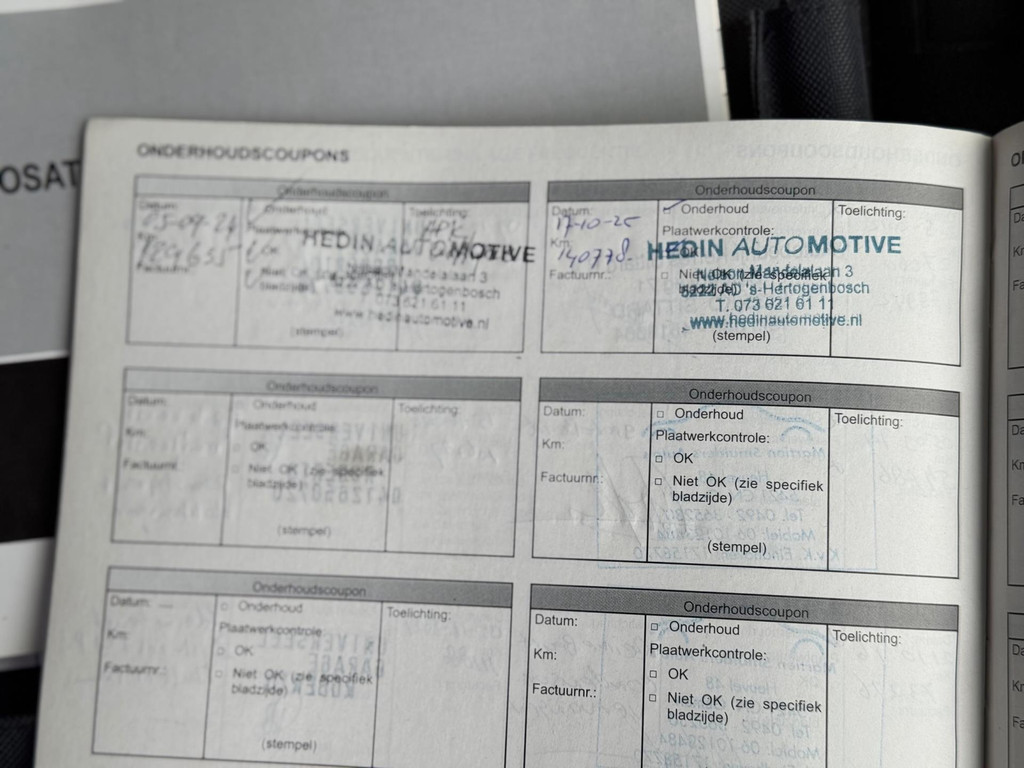 OSAT
ONDERHOUDSCOUPONS
Onderhoudscoupon
Datum:
Onderhoud
Toelichting:
APK
Plaatwerkcontrole:
Km:
OK
Factuurnr.:
HEDIN AUTOMOTIVE
Mandelalaan 3
's-Hertogenbosch
073 621 61 11
www.hedinautomotive.nl
(stempel)
Onderhoudscoupon
Datum:
17-10-25
Onderhoud
Toelichting:
Plaatwerkcontrole:
Km:
140778
OK
Factuurnr.:
Niet OK (zie specifiek
bladzijde)
HEDIN AUTOMOTIVE
Mandelalaan 3
5222 AD 's-Hertogenbosch
T. 073 621 61 11
www.hedinautomotive.nl
(stempel)
Onderhoudscoupon
Datum:
Onderhoud
Toelichting:
Plaatwerkcontrole:
Km:
OK
Factuurnr.:
Niet OK (zie specifiek
bladzijde)
(stempel)
Onderhoudscoupon
Datum:
Onderhoud
Toelichting:
Plaatwerkcontrole:
Km:
OK
Factuurnr.:
Niet OK (zie specifiek
bladzijde)
(stempel)
Onderhoudscoupon
Datum:
Onderhoud
Toelichting:
Plaatwerkcontrole:
Km:
OK
Factuurnr.:
Niet OK (zie specifiek
bladzijde)
(stempel)
Onderhoudscoupon
Datum:
Onderhoud
Toelichting:
Plaatwerkcontrole:
Km:
OK
Factuurnr.:
Niet OK (zie specifiek
bladzijde)